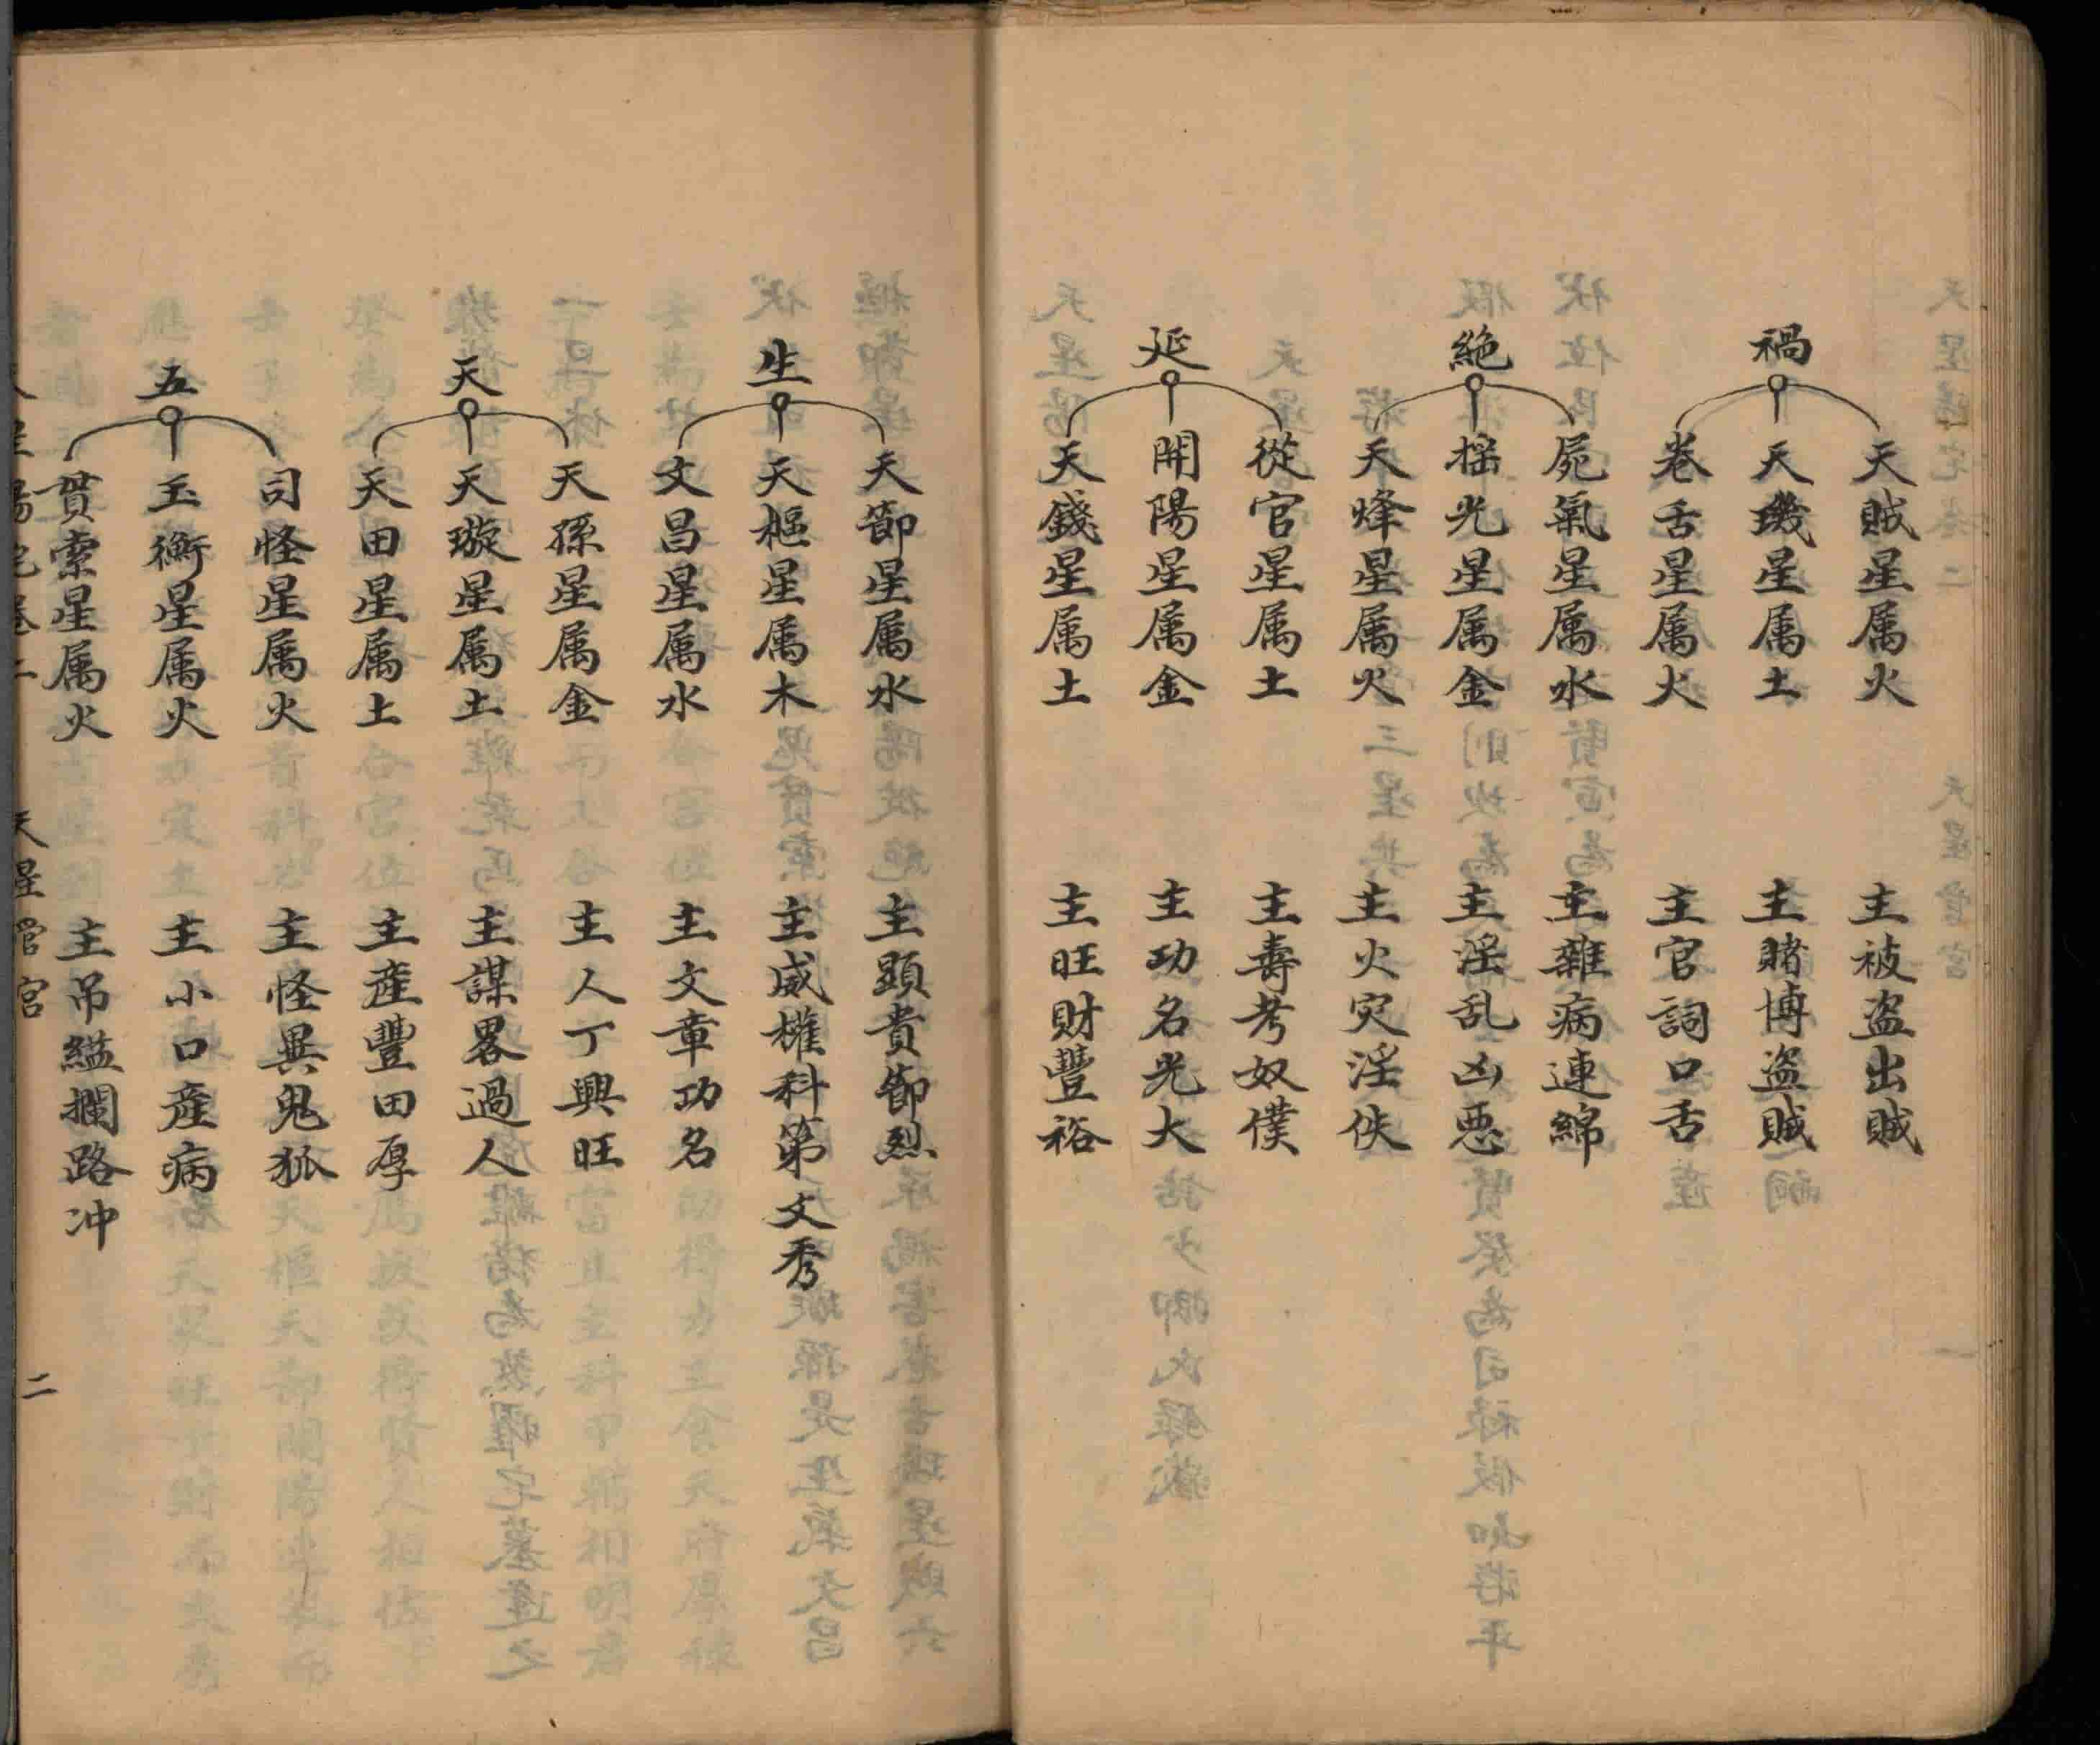 禍
天賊星属火　主被盗出賊
天璣星属土　主賭博盗賊
卷舌星属火　主官詞口舌
絶
屍氣星属水　主雜病連綿
揺光星属金　主淫乱凶悪
天烽星属火　主火灾淫佚
延
從官星属土　主壽考奴僕
開陽星属金　主功名光大
天錢星属土　主旺財豐裕
生
天節星属水　主顕貴節烈
天樞星属木　主威權科第文秀
文昌星属水　主文章功名
天
天孫星属金　主人丁興旺
天璇星属土　主謀畧過人
天田星属土　主産豐田厚
五
司怪星属火　主怪異鬼狐
玉衡星属火　主小口産病
貫索星属火　主吊縊攔路冲
天星陽宅卷二　天星管宮　二